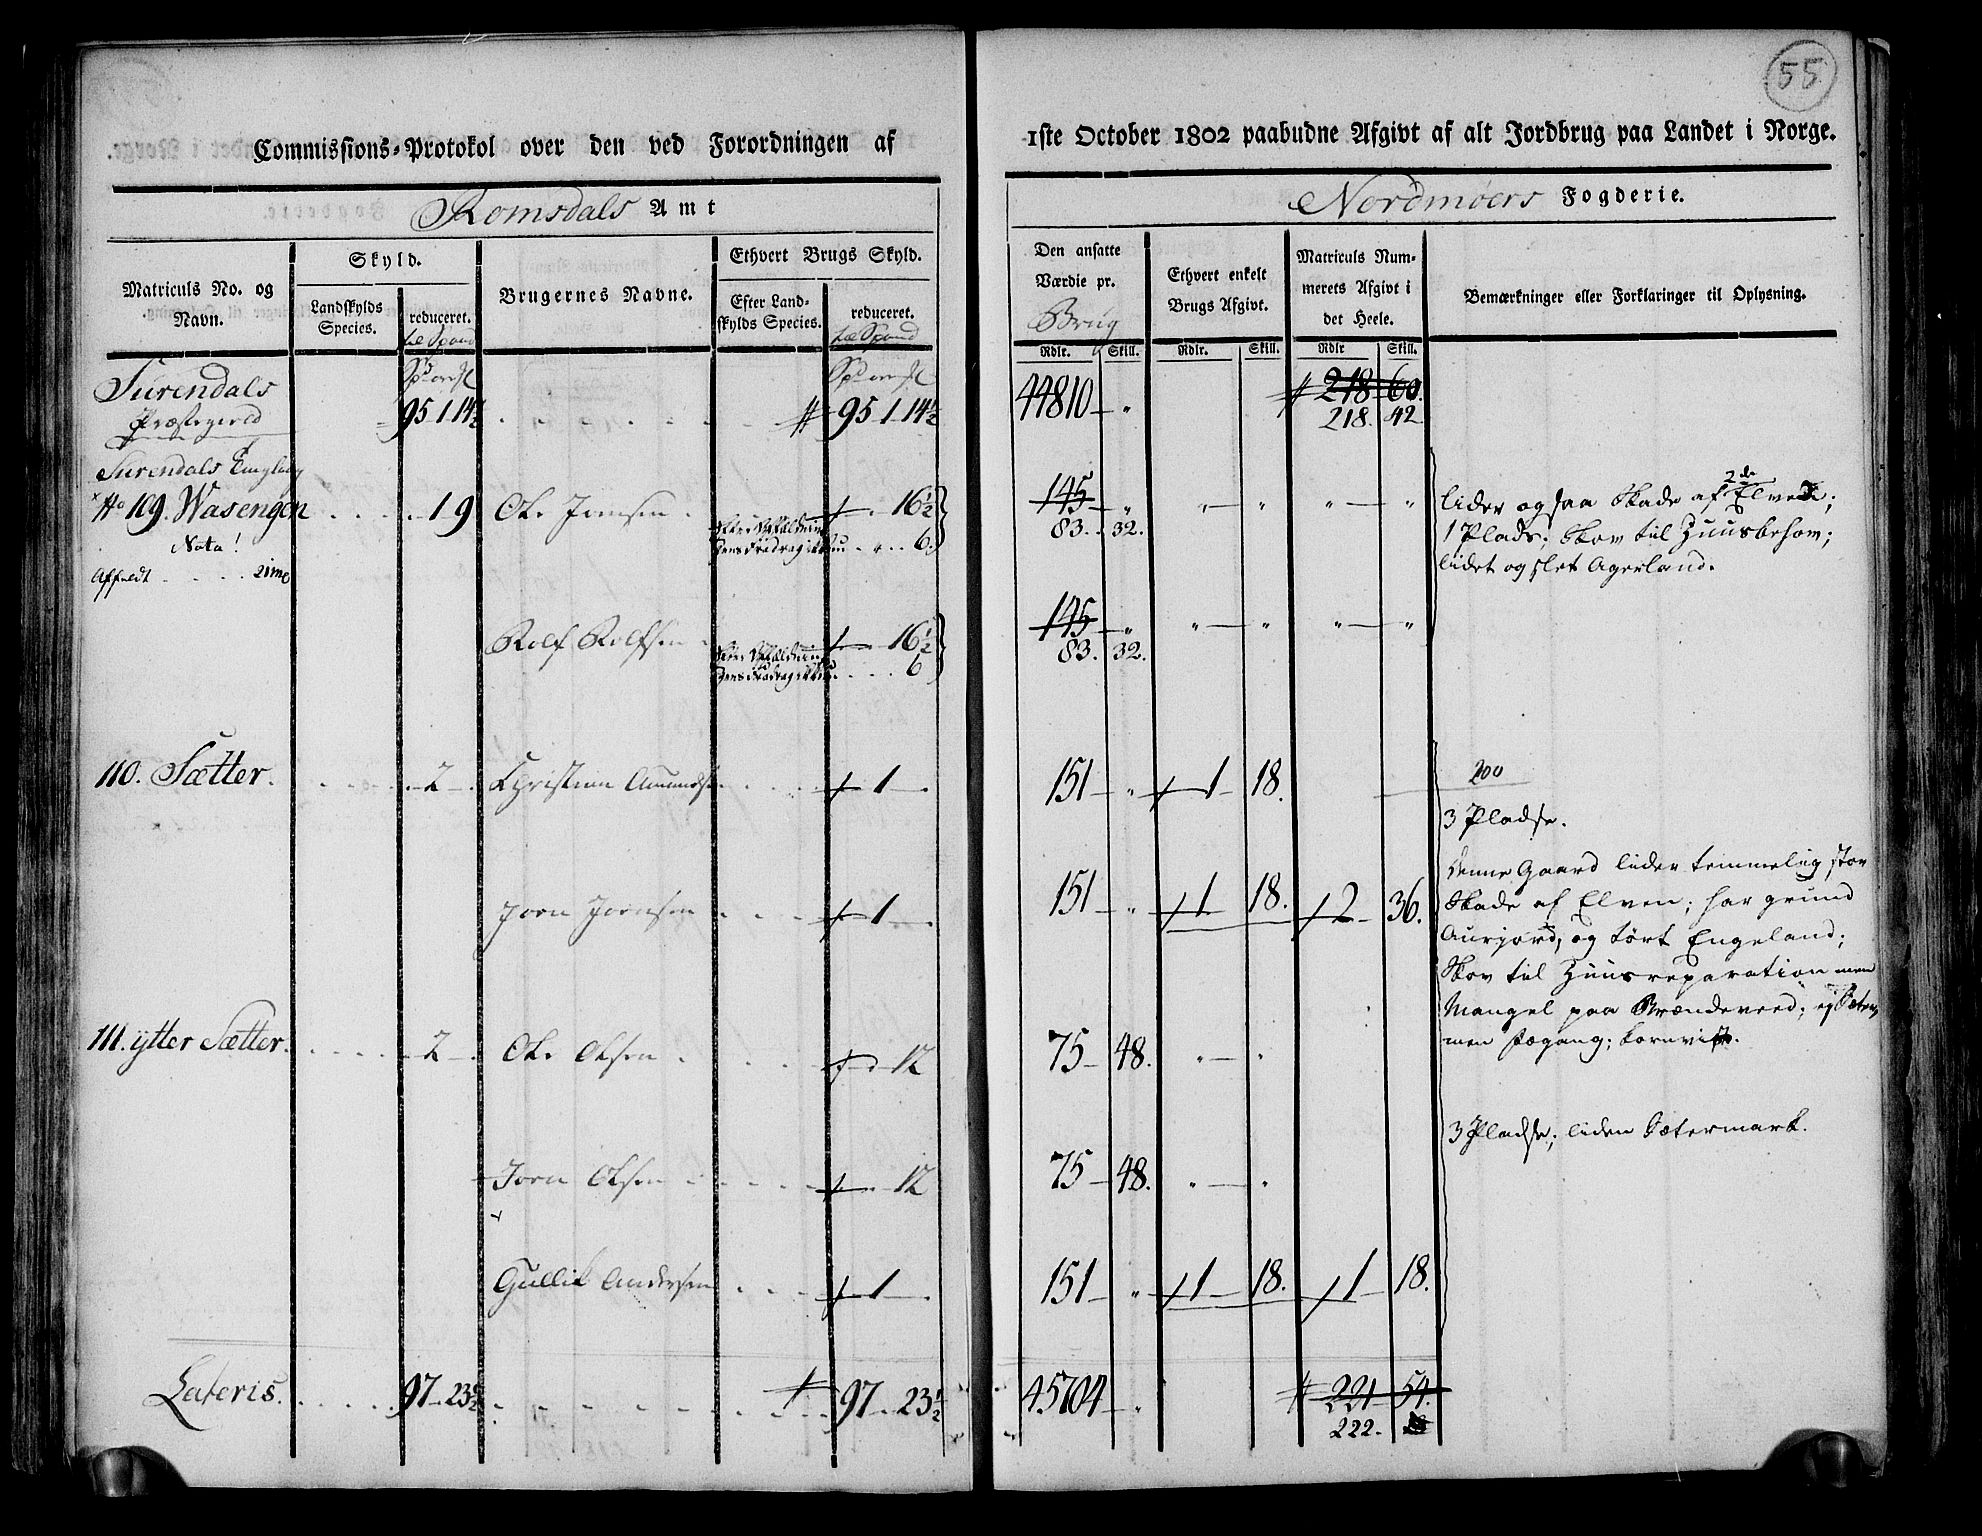 55
Commissions-Protokol over den ved Forordningen af 1ste October 1802 paabudne Afgivt af alt Jordbrug paa Landet i Norge.
Romsdals Amt
Nordmøers Fogderie.
Matriculs No. og Navn.
Skyld.
Landskylds Species.
reduceret.
til Spand
Brugernes Navne.
Ethvert Brugs Skyld.
Efter Landskylds Species.
reduceret.
til Spand
Den ansatte Værdie pr. Brug
Ethvert enkelt Brugs Afgivt.
Matriculs Nummerets Afgivt i det Heele.
Bemærkninger eller Forklaringer til Oplysning.
Rdlr. Skill. Rdlr. Skill. Rdlr Skill.
Surendals
Præstegield
95 1 14½ 95 1 14½ 44810 „ 218 60.
218. 42
Surendals
No 109. Wasengen 1 9 Ole Joensen 16½ 145 „ „ „ „ „
6. 83. 32.
Nota!
Affældt
lider ogsaa Skade af 2de Elve;
1 Plads; Skov til Huusbehov;
lidet og slet Agerland.
Rolf Rolfsen 16½ 145 „ „ „ „ „
6 83. 32.
110. Sætter. 2 Christian Amunds 1 151 „ 1 18.
200
3 Pladse.
Joen Joensen 1 151 „ 1 18. 2 36.
Denne Gaard lider temmelig stor
Skade af Elven; har grund
Aurjord, og tørt Engeland;
Skov til Huusreparation men
Mangel paa Brændeveed; ej Sæter,
men Fægang; kornvis.
111. ytter Sætter. 2 Ole Olsen 12 75 48. „ „
3 Pladse; liden Sætermark.
Joen Olsen 12 75 48. „ „
Gullik Andersen 1 151 „ 1 18. 1 18.
Lateris. 97 23½ 97 23½ 45704 „ 221 54.
222.